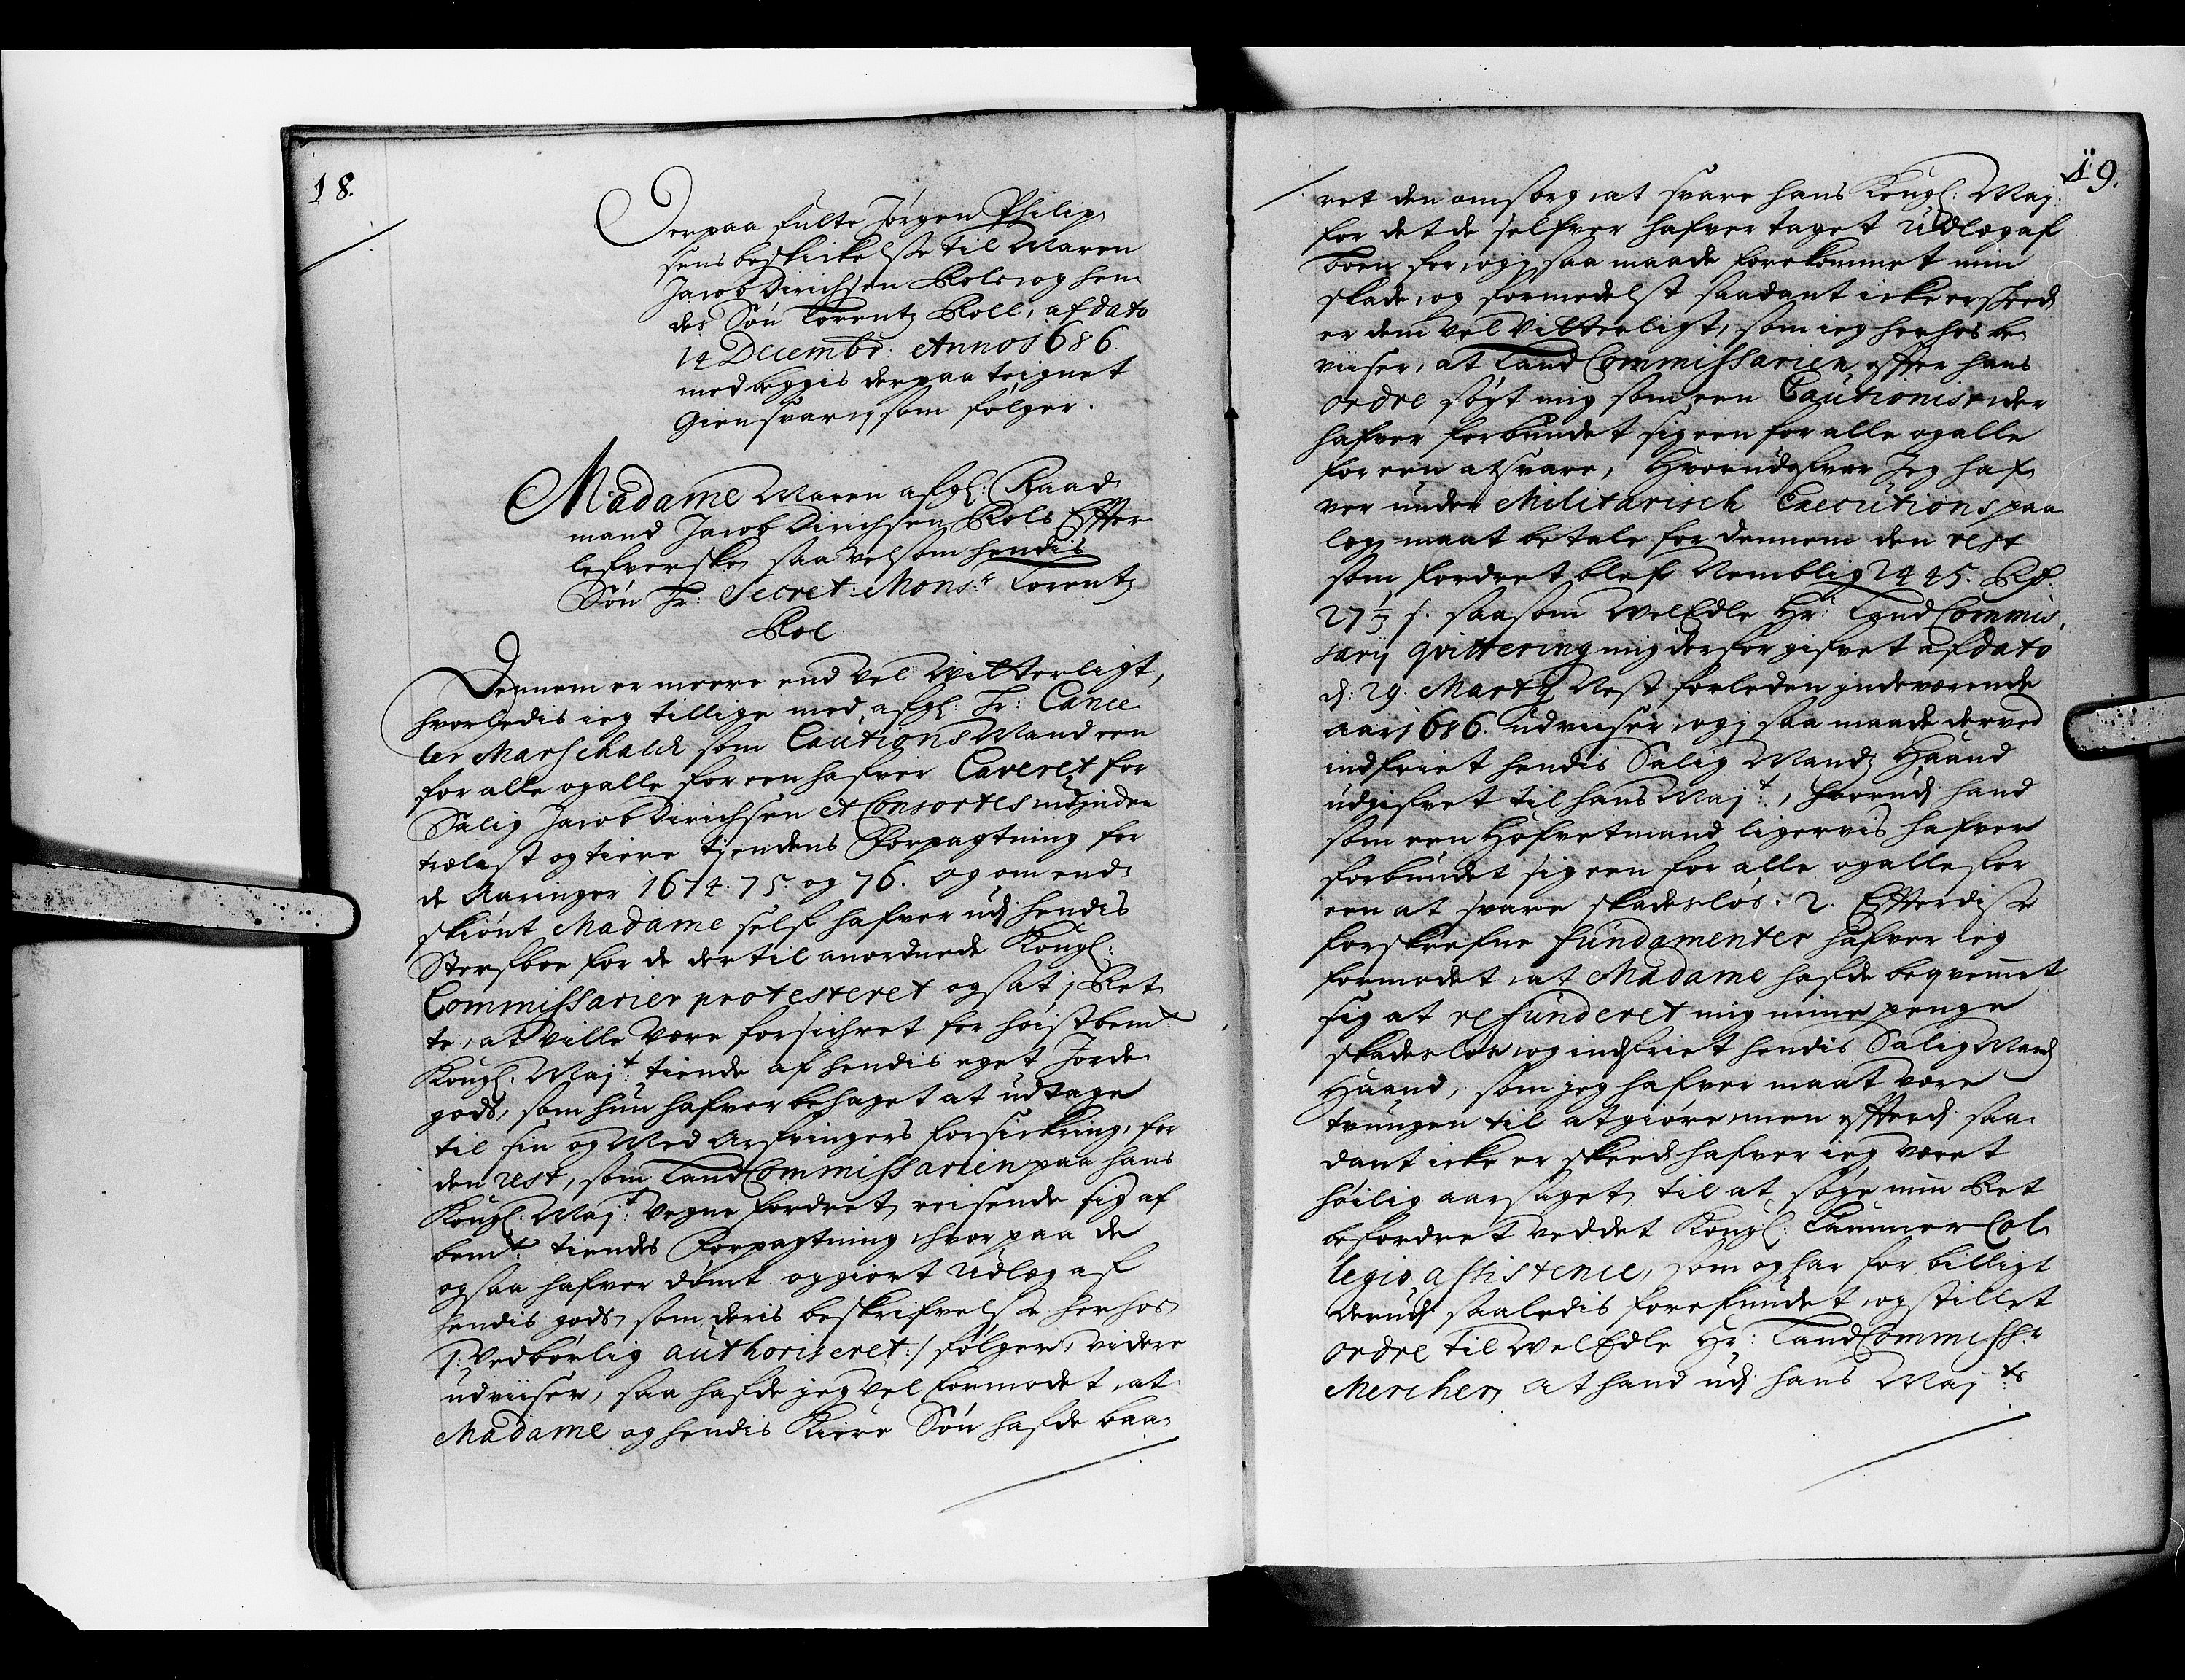 18.
Derpaa fulte Jørgen Philip
sens beskickelse til Maren
Jacob Dirichsen Rols og hen
des Søn Lorentz Roll, af dato
14 Decembr: Anno 1686.
med beggis derpaa teignet
Giensvar, som følger.
Madame Maren afgl: Raad
mand Jacob Dirichsen Rols Effter
lefverske saa vel som hendis
Søn Hr: Secret: Mons.r Lorentz
Rol
Dennem er meere end vel vitterligt,
hvorledis ieg tillige med afgl: Hr: Cance
ler Marschalck som Cautions Mand een
for alle og alle for een hafver Caveret for
Salig Jacob Dirichsen et Consortes udj indtræ
trælast og tiere tiendens Forpagtning for
de Aaringer 1674. 75. og 76. og omend
skiønt Madame self hafver udj hendis
Sterfboe for de dertil anordnede Kongl:
Commissarier protesteret og sat j Ret
te, at ville være forsichret for høistbemt:
Kongl. Maj.t tiende af hendis eget Jorde
gods, som hun hafver behaget at udtage
til sin og Med Arfvingers forsickring, for
den rest, som Land Commissarien paa hans
Kongl. Maj.t Vegne fordret, reisende sig af
bemt: tiendes Forpagtning hvorpaa de
ogsaa hafver dømt og giort Udlæg af
hendis gods, som deris beskrifvelse herhos
/: Vedbørlig authoriseret :/ følger, videre
udviiser, saa hafde jeg vel formodet, at
Madame og hendis Kiere Søn hafde baa
19.
ret den omsorg at svare hans Kongl: Maj:
for det de selfver hafver taget Udlæg af
boen for, og j saa maade forekommet min
skade, og formedelst saadant icke er skeed
er dem vel vitterligt, som ieg herhos be
viiser, at Land Commissarien effter hans
ordre søgt mig som een Cautionist der
hafver forbundet sig een for alle og alle
for een at svare, Hvorudofver Jeg haf
ver under Militarisch Executions paa
læg maat betale for dennem den rest
som fordret blef Nemblig 2445. Rd:
27 1/3 s. saasom WelEdle Hr: Land Commis
sarij qvittering mig derfor gifvet af dato
d: 29. Martij Nest forleden indeværende
aar 1686. udviiser, og j saa maade derved
indfriet hendis Salig Mands Haand
udgifvet til hans Maj.t, hvorudj hand
som een Hofvetmand ligervis hafver
forbundet sig een for alle og alle for
een at svare skadesløs. 2. Effterdisse
forskrefne fundamenter hafver ieg
formodet, at Madame hafde beqvemet
sig at refunderet mig mine penge
skadesløs og indfriet hendis Salig Mands
Haand, som jeg hafver maat være
tvungen til at giøre, men effterdj saa
dant icke er skeed, hafver ieg været
høilig aarsaget til at søge min Ret
befordret ved det Kongl: Cammer Col
legio assistence, som og har for billigt
derudj saaledis forefundet, og stillet
ordre til WelEdle Hr: Land Commiss.r
Mercher, at hand udj hans Maj.ts